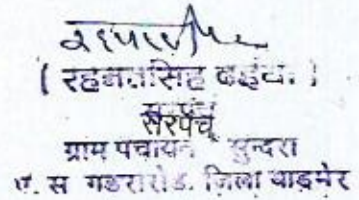 ( रहमतसिह
सरपंच
ग्राम पंचायत सुन्दरा
पं. स गडरारोड. जिला बाड़मेर